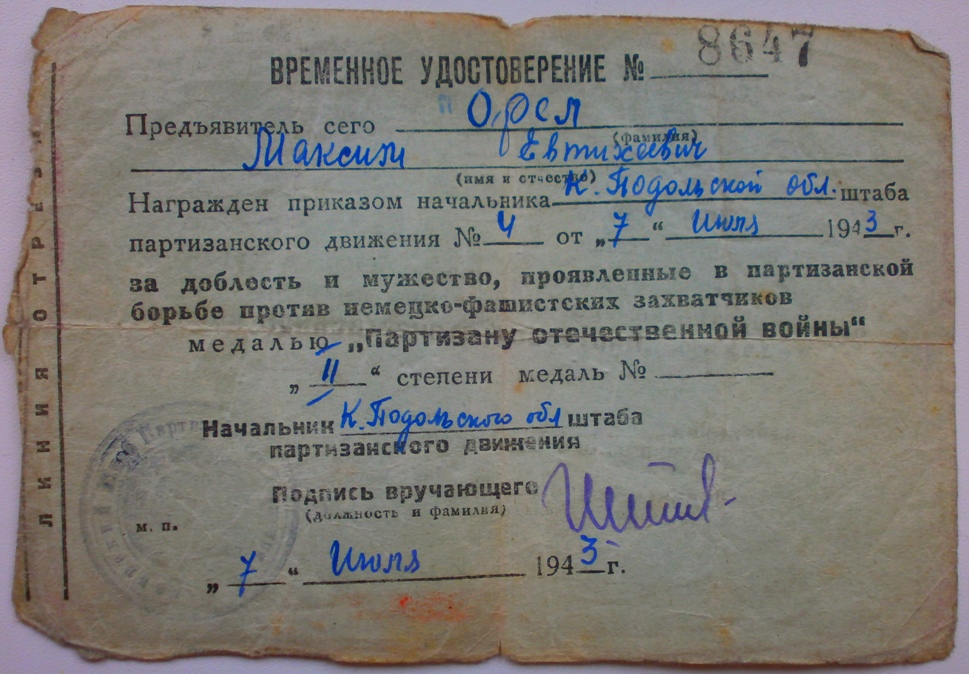 ВРЕМЕННОЕ УДОСТОВЕРЕНИЕ № 8647
Предъявитель сего Орел
(фамилия)
Максим Евтихеевич
(имя и отчество)
Награжден приказом начальника К. Подольской обл. штаба
партизанского движения № 4 от „7" Июля 1943 г.
за доблесть и мужество, проявленные в партизанской
борьбе против немецко-фашистских захватчиков
медалью „Партизану отечественной войны"
„II" степени медаль №
Начальник К. Подольского обл штаба
партизанского движения
Подпись вручающего
(должность и фамилия)
м. п.
„7" Июля 1943 г.
ЛИНИЯ ОТРЕЗА